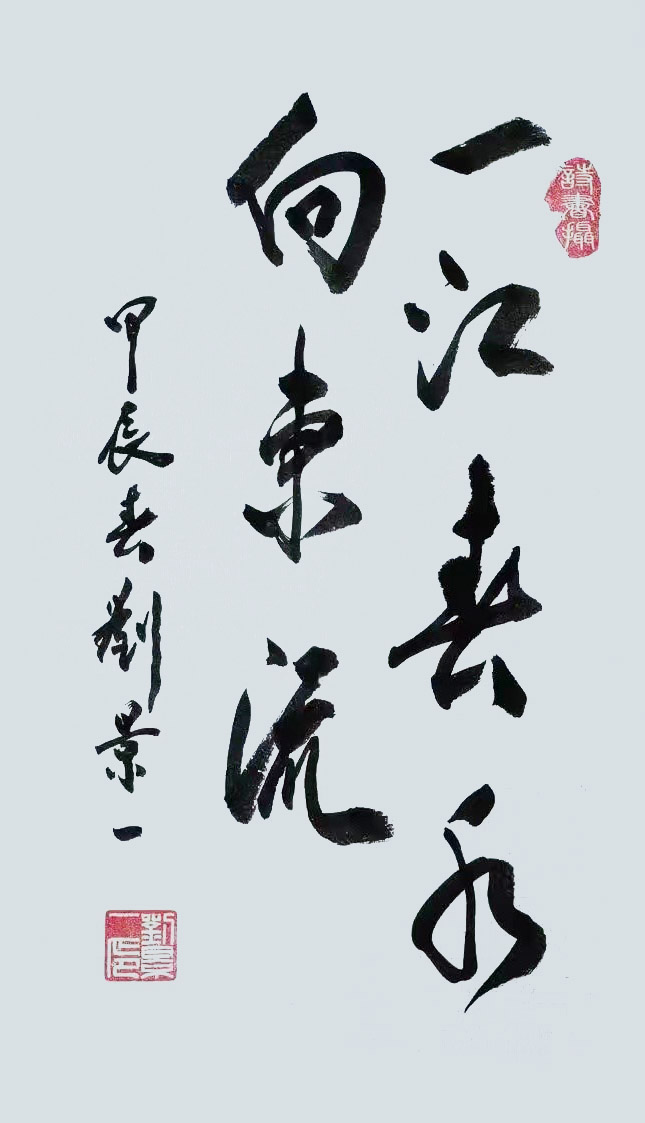 一江春水
向東流
甲辰春劉景一
詩書攝
劉景一印